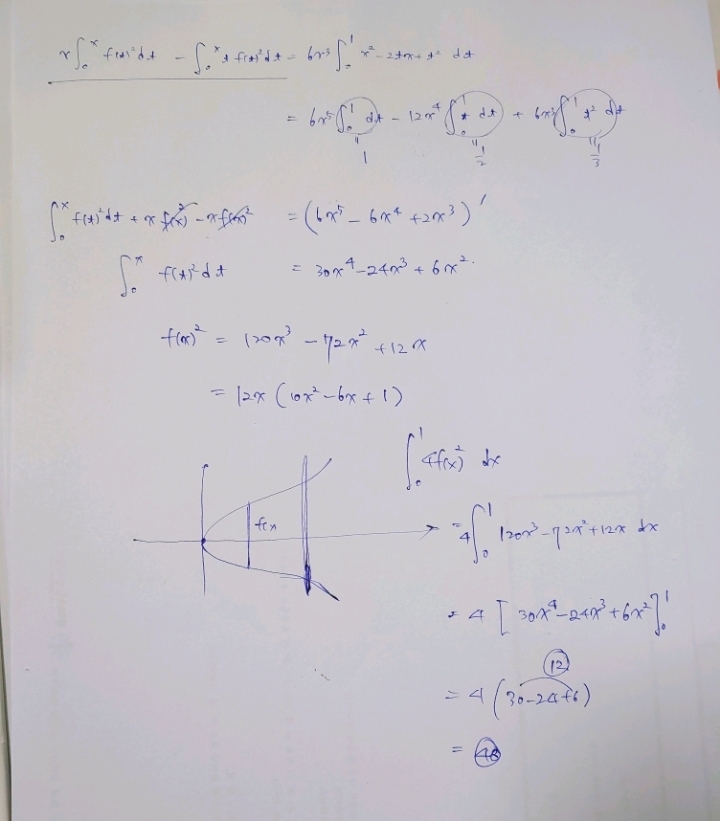 x∫₀ˣ f(t)²dt − ∫₀ˣ t f(t)²dt = 6x³∫₀¹ x²−2tx+t² dt
= 6x⁵∫₀¹ dt − 12x⁴∫₀¹ t dt + 6x³∫₀¹ t² dt
= 1 = 1/2 = 1/3
∫₀ˣ f(t)²dt + x f(x)² − x f(x)² = (6x⁵ − 6x⁴ + 2x³)′
∫₀ˣ f(t)² dt = 30x⁴−24x³ + 6x².
f(x)² = 120x³ − 72x² + 12x
= 12x (10x²−6x+1)
∫₀¹ 4f(x)² dx
f(x
= 4∫₀¹ 120x³−72x²+12x dx
= 4 [30x⁴−24x³+6x²]₀¹
12
= 4 (30−24+6)
= 48